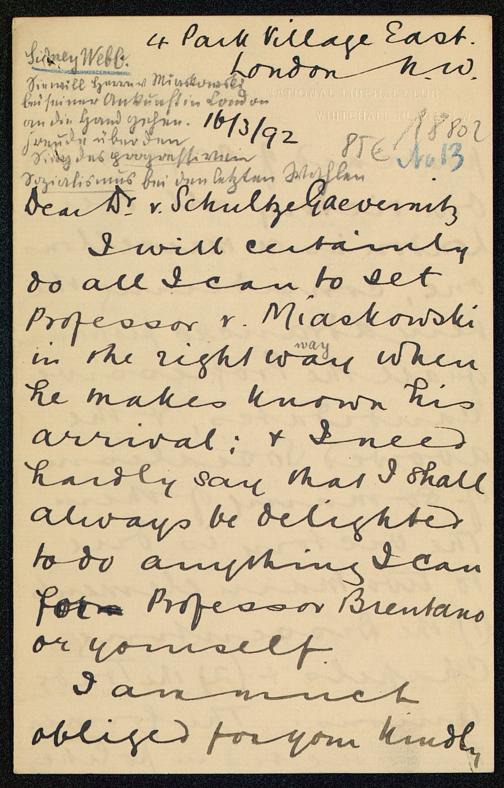 4 Park Village East.
London N.W.
Sidney Webb.
Sie will Herrn v Miaskowski
bei seiner Ankunft in London
an die Hand gehen.
Freude über den
Sieg des progressiven
Sozialismus bei den letzten Wahlen
16/3/92
No 13
Dear Dr. v. Schultze Gaevernitz
I will certainly
do all I can to set
Professor v. Miaskowski
in the right way when
way
he makes known his
arrival; & I need
hardly say that I shall
always be delighted
to do anything I can
for Professor Brentano
or yourself
I am much
obliged for your kindly